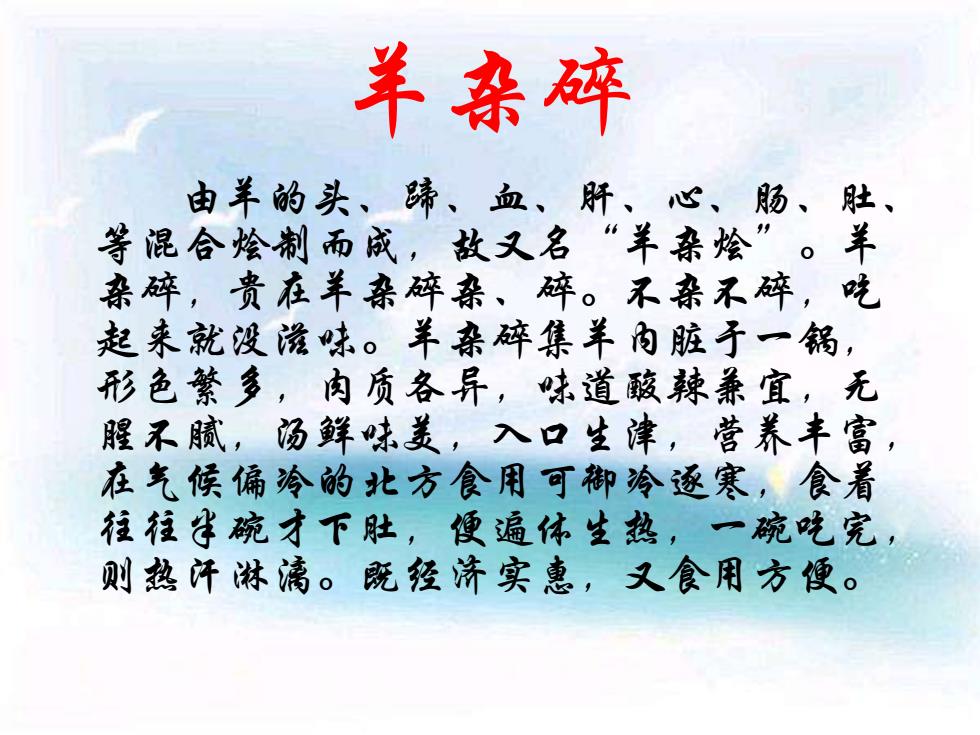 羊杂碎
由羊的头、蹄、血、肝、心、肠、肚、
等混合烩制而成，故又名“羊杂烩”。羊
杂碎，贵在羊杂碎杂、碎。不杂不碎，吃
起来就没滋味。羊杂碎集羊内脏于一锅，
形色繁多，肉质各异，味道酸辣兼宜，无
腥不腻，汤鲜味美，入口生津，营养丰富，
在气候偏冷的北方食用可御冷逐寒，食着
往往半碗才下肚，便遍体生热，一碗吃完，
则热汗淋漓。既经济实惠，又食用方便。